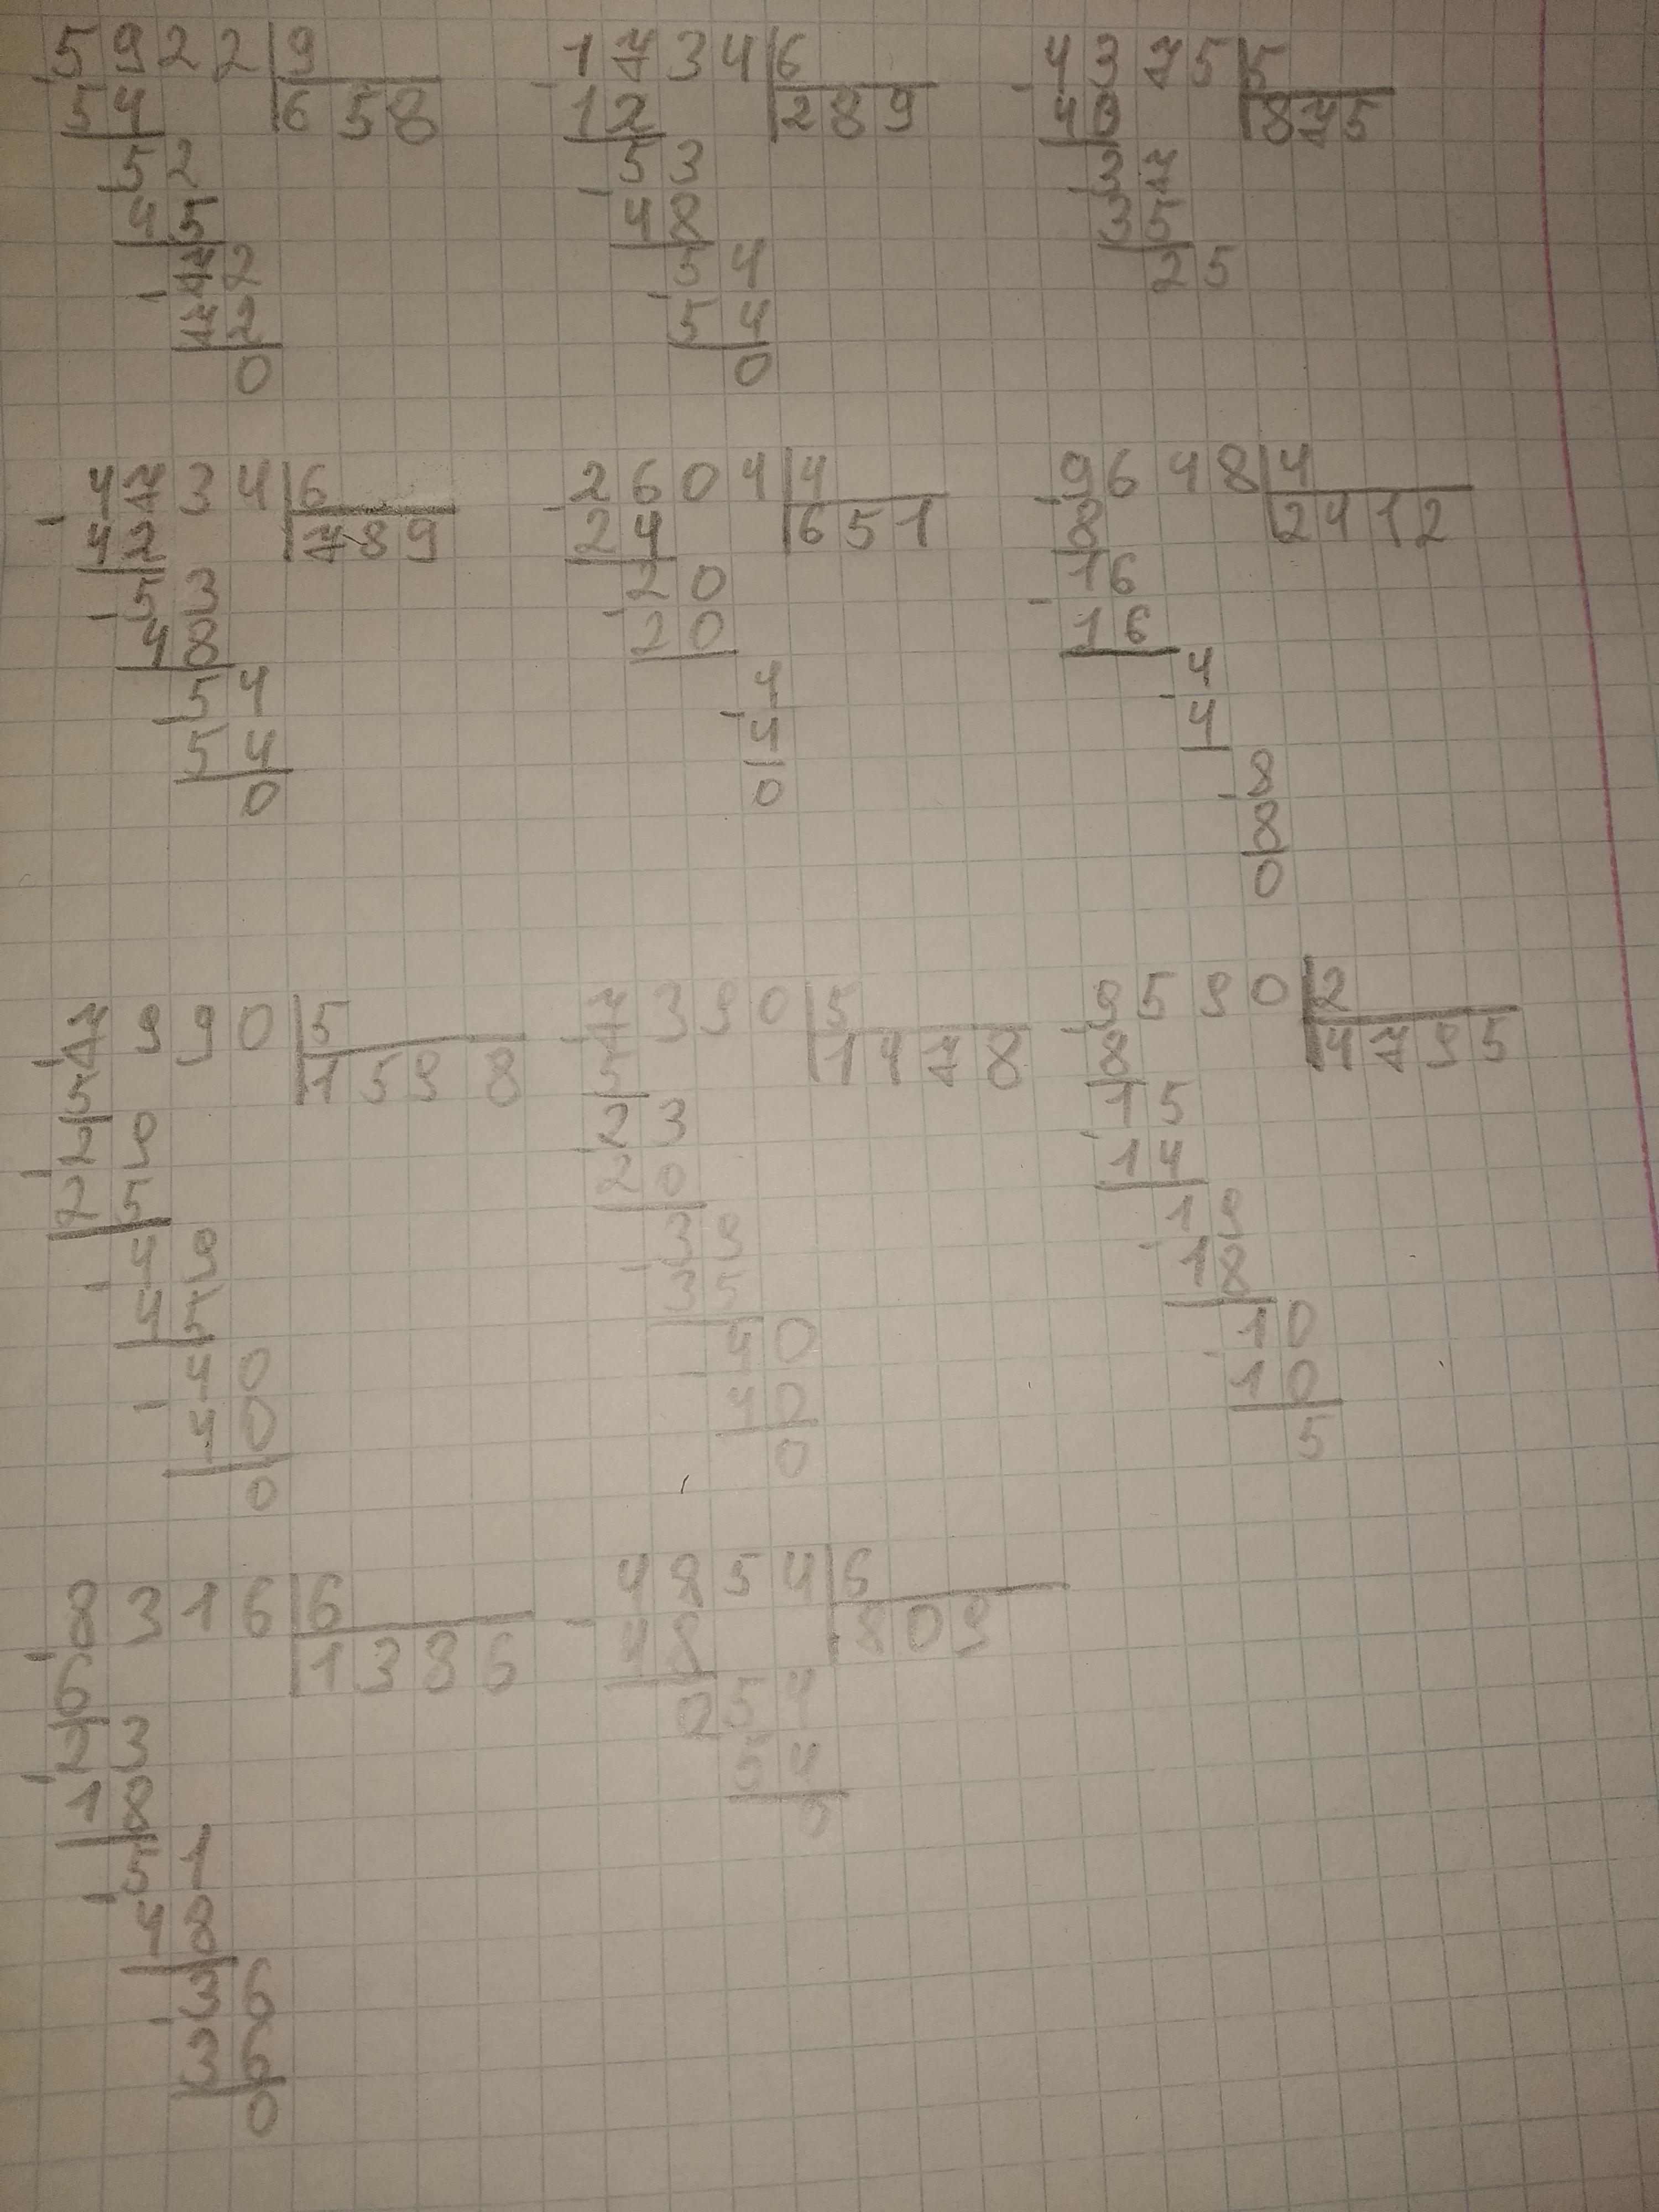 5922|9
-54 |658
-52
45
-72
72
0
1734|6
-12 |289
-53
48
-54
54
0
4375|5
-40 |875
-37
35
25
4734|6
-42 |789
-53
48
-54
54
0
2604|4
-24 |651
-20
20
-4
4
0
9648|4
-8 |2412
-16
16
-4
4
-8
8
0
7990|5
-5 |1598
-29
25
-49
45
-40
40
0
7390|5
-5 |1478
-23
20
-39
35
-40
40
0
9590|2
-8 |4795
-15
14
-19
18
-10
10
5
8316|6
-6 |1386
-23
18
-51
48
-36
36
0
4854|6
-48 |809
054
54
0